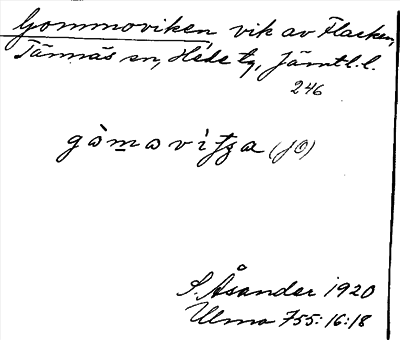 Gommoviken vik av Flacken,
Tännäs sn, Hede tg, Jämtl. l.
246
gòmavìʈʂa (JÖ)
S. Åsander 1920
Ulma 755:16:18